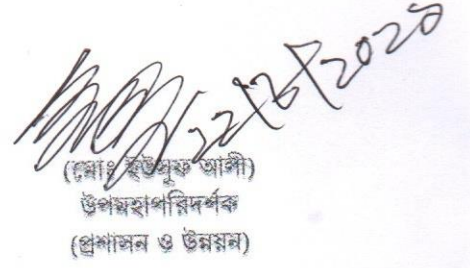 ২২/৬/২০২৩
(মোঃ ইউসুফ আলী)
উপমহাপরিদর্শক
(প্রশাসন ও উন্নয়ন)